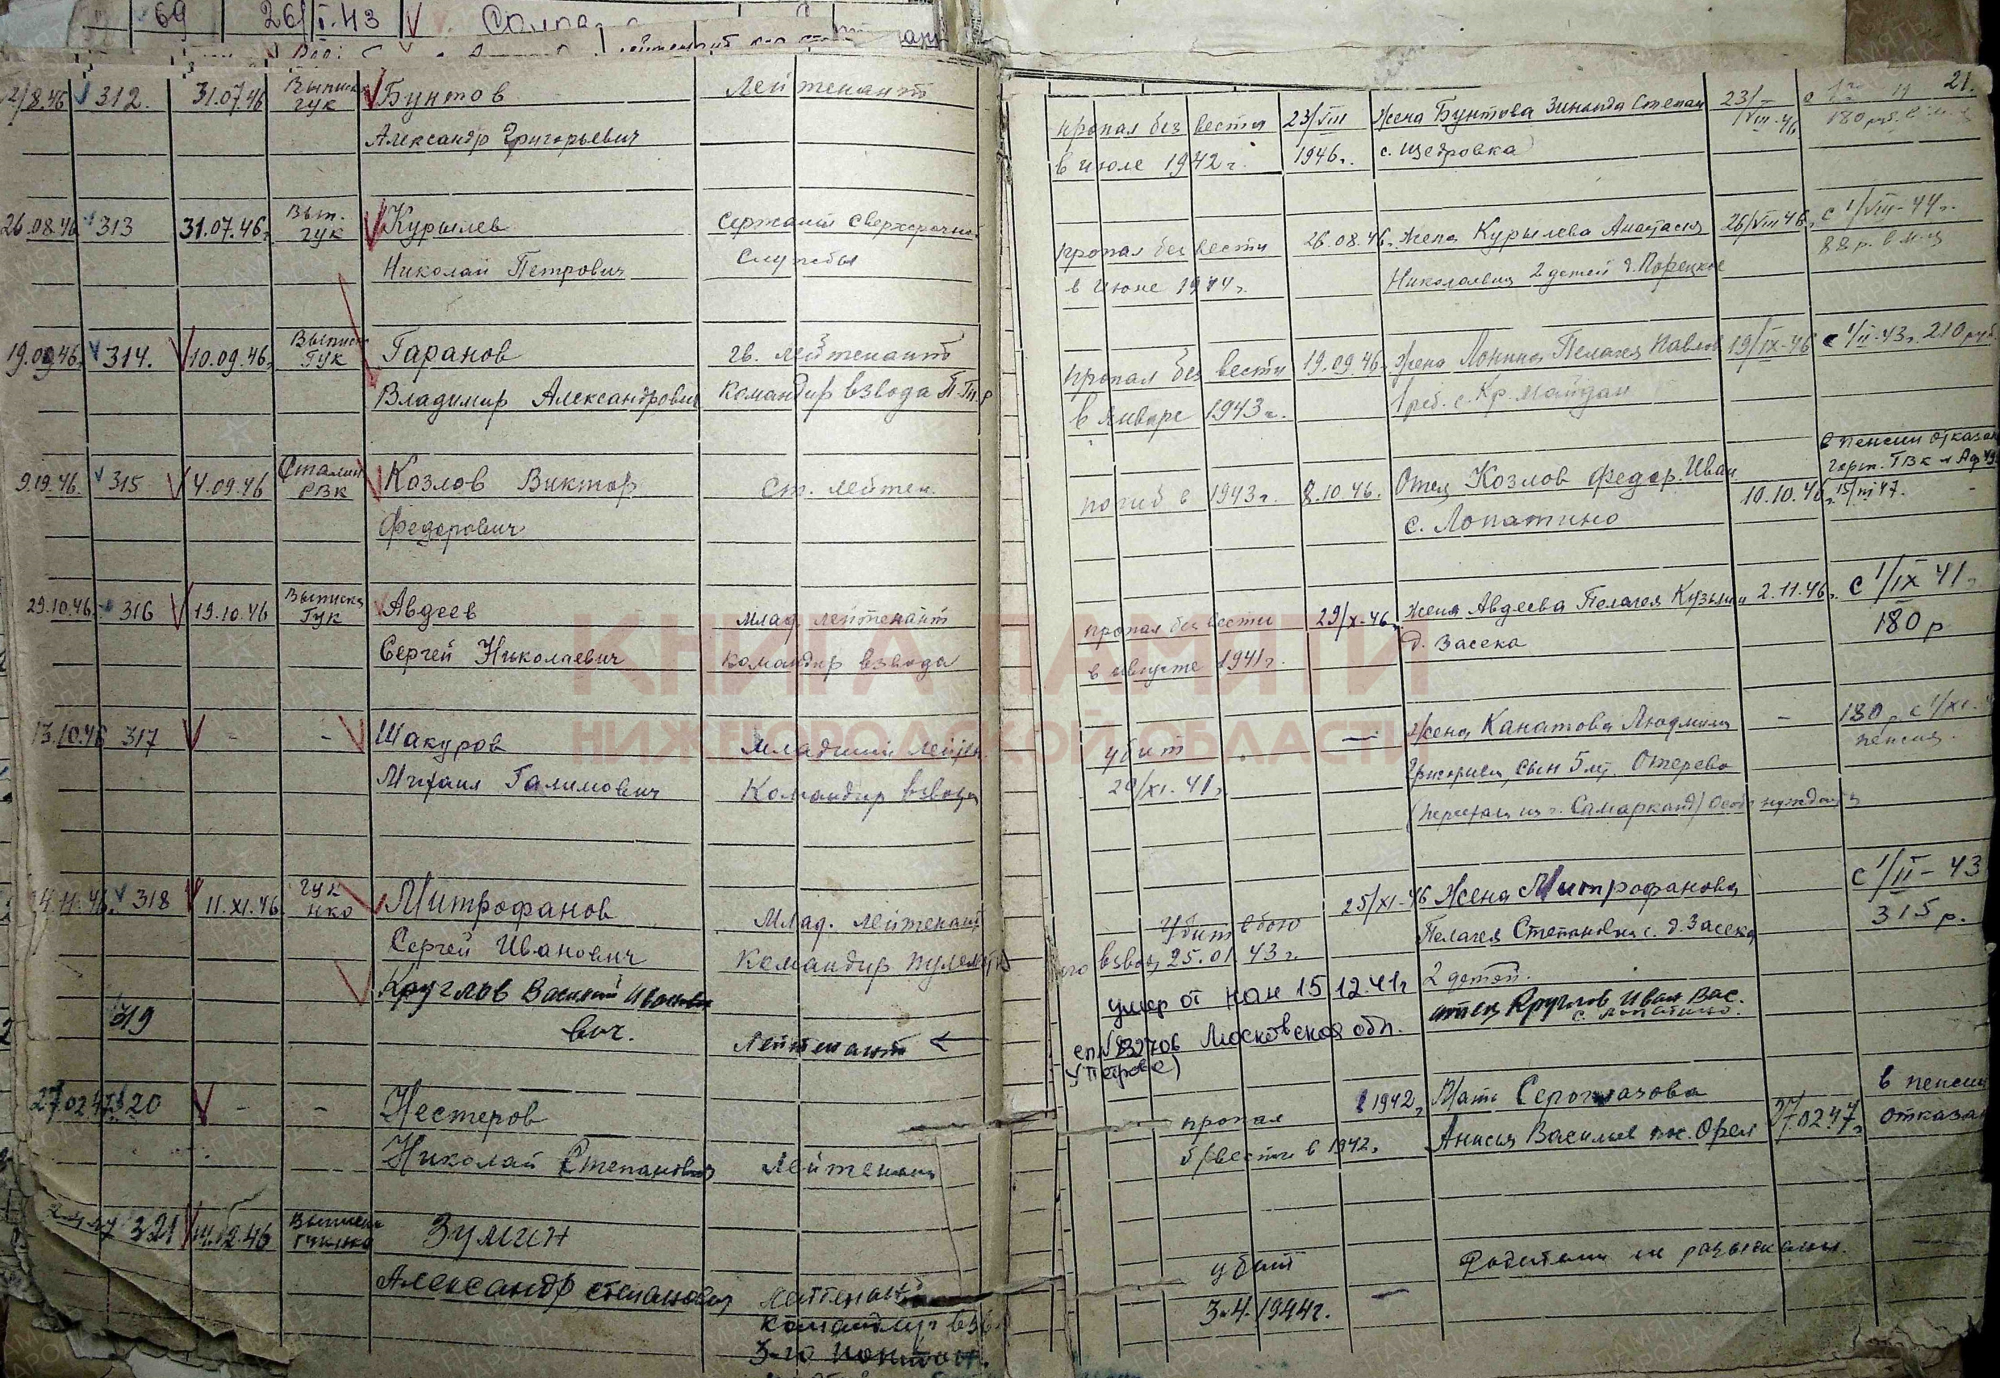 69 26/I.43
2/8.46 312. 31.07.46 Выписк Бунтов Лейтенант
гук
Александр Григорьевич
пропал без вести 23/VIII Жена Бунтова Зинаида Степан 23/VIII-46 с 21.
в июле 1942г. 1946г. с. Щедровка 180 руб. в м-ц
26.08.46 313 31.07.46г. Вып. Курылев Сержант сверхсрочной
гук
Николай Петрович службы
пропал без вести 26.08.46г. Жена Курылева Анастасия 26/VIII 46г. с 1/VIII-44г.
в июне 1944г. Николаевна 2 детей с. Порецкое 88 р. в м-ц
19.09.46г. 314. 10.09.46г. Выписк Таранов гв. лейтенант
Гук
Владимир Александрович командир взвода П-Тт.р
пропал без вести 19.09.46г. Жена Лонина Пелагея Павлов 19/IX-46 с 1/II-43г. 210 руб.
в январе 1943г. 1 реб. с. Кр. Майдан
9.19.46. 315 4.09.46 Сталин Козлов Виктор Ст. лейтен.
РВК
Федорович
погиб в 1943г. 8.10.46. Отец Козлов Федор Иван 10.10.46г. в пенсии отказан
с. Лопатино 15/III 47.
29.10.46. 316 19.10.46 Выписка Авдеев Млад. лейтенант
Гук
Сергей Николаевич командир взвода
пропал без вести 29/X-46г. жена Авдеева Пелагея Кузьмин 2.11.46г. с 1/IX 41г
в августе 1941г. д. Засека 180 р
13.10.46 317 - - Шакуров Младший лейтен
Михаил Галимович Командир взвода
убит — Жена Канатова Людмила - 180 р с 1/XI.
20/XI.41г Григорьев, сын 5 лет. Отерево пенсия.
(переехал из г. Самарканд) Особо нуждающ
14.11.46. 318 11.XI.46 гук Митрофанов Млад. лейтенант
нко
Сергей Иванович Командир пулеметн
Убит в бою 25/XI-46 Жена Митрофанова с 1/II-43
ого взвод 25.01.43г. Пелагея Степановна с. д. Засека 315 р.
2 детей.
319 Круглов Василий Иванович.
Лейтенант
умер от ран 15.12.41г отец Круглов Иван Вас.
с. Лопатино.
Московская обл.
27.02.47г 320 - - Нестеров
Николай Степанович Лейтенант
пропал 1942г Мать Серогла­зова в пенсии
б/вести в 1942г. Анисья Василев пос. Орел 27.02.47г. отказан
321 14.12.46 Выписка Зумин
гук нко
Александр Степанович Лейтенант
командир взв
3-го
убит Родители не разысканы.
3.4.1944г. —
КНИГА ПАМЯТИ
НИЖЕГОРОДСКОЙ ОБЛАСТИ